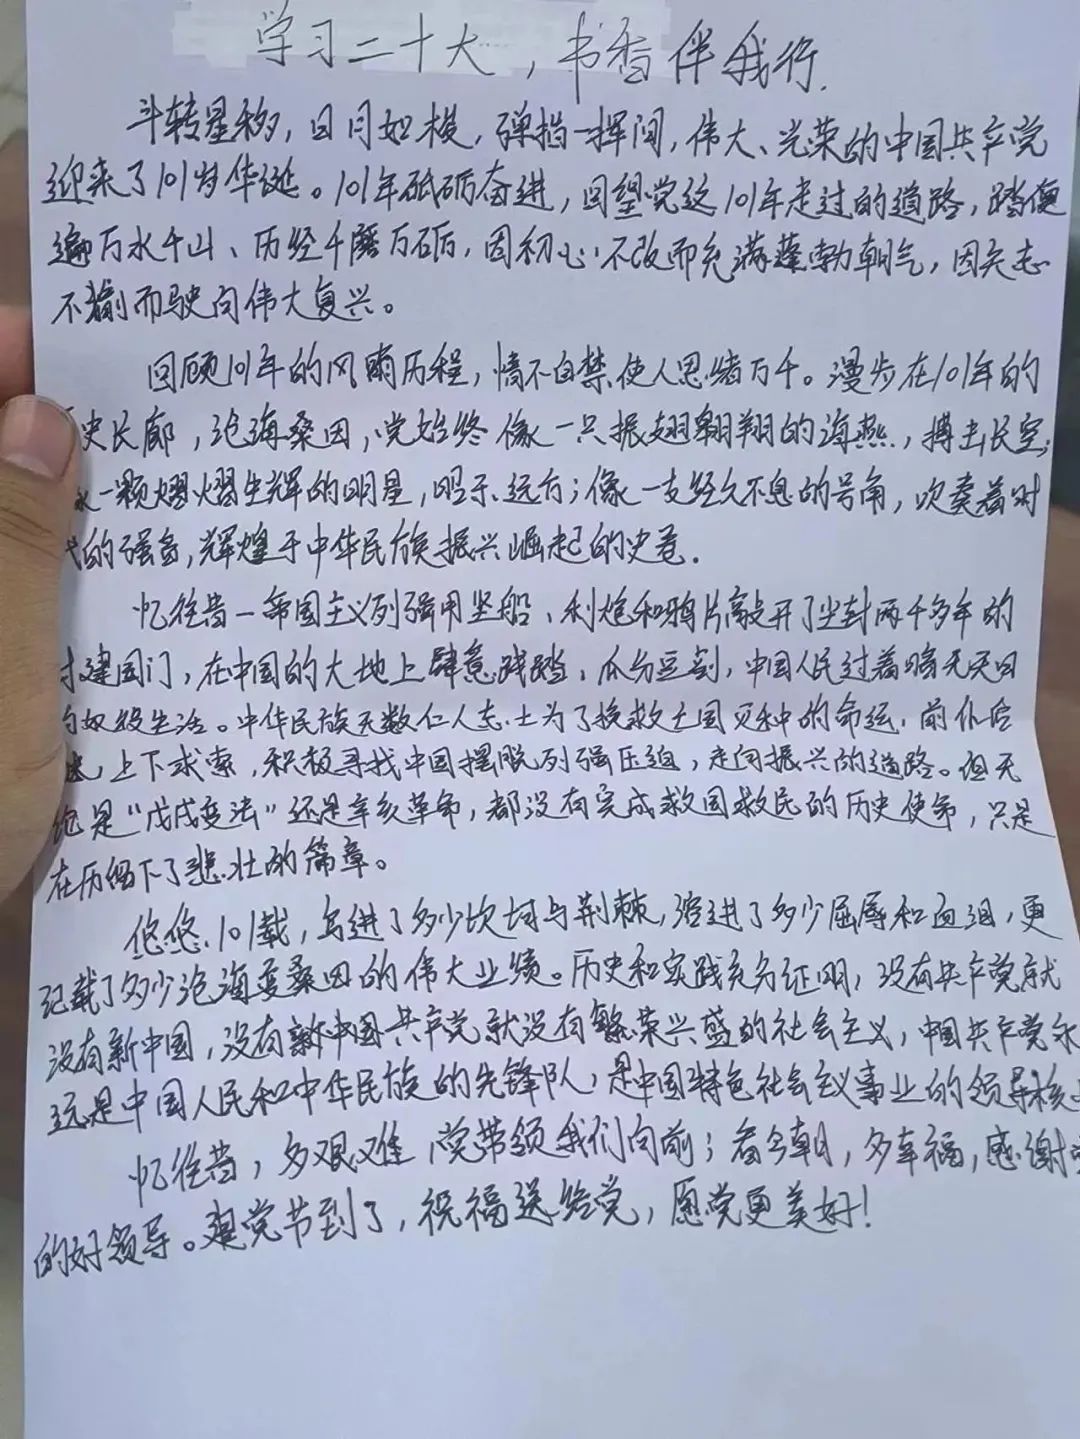 学习二十大，书香伴我行.
斗转星移，日月如梭，弹指一挥间，伟大、光荣的中国共产党
迎来了101岁华诞。101年砥砺奋进，回望党这101年走过的道路，踏便
遍万水千山、历经千磨万砺，因初心不改而充满蓬勃朝气，因矢志
不渝而驶向伟大复兴。
回顾101年的风雨历程，情不自禁使人思绪万千。漫步在101年的
史长廊，沧海桑田，党始终像一只振翅翱翔的海燕，搏击长空；
一颗熠熠生辉的明星，昭示远方；像一支经久不息的号角，吹奏着时
的强音，辉煌于中华民族振兴崛起的史卷.
忆往昔－帝国主义列强用坚船、利炮和鸦片敲开了尘封两千多年的
建国门，在中国的大地上肆意践踏，瓜分豆剖，中国人民过着暗无天日
奴役生活。中华民族无数仁人志士为了挽救土国灭种的命运，前仆后
，上下求索，积极寻找中国摆脱列强压迫，走向振兴的道路。但无
论是“戊戌变法”还是辛亥革命，都没有完成救国救民的历史使命，只是
在历留下了悲壮的篇章。
悠悠101载，写进了多少坎坷与荆棘，溶进了多少屈辱和血泪，更
记载了多少沧海变桑田的伟大业绩。历史和实践充分证明，没有共产党就
没有新中国，没有新中国共产党就没有繁荣兴盛的社会主义，中国共产党永
远是中国人民和中华民族的先锋队，是中国特色社会主义事业的领导核
忆往昔，多艰难，党带领我们向前；看今朝，多幸福，感谢党
的好领导。建党节到了，祝福送给党，愿党更美好！